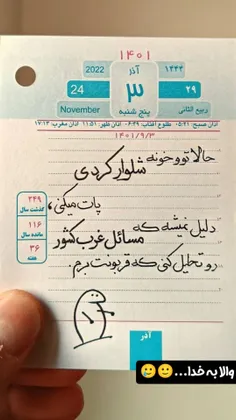 ۱۴۰۱
2022
آذر
۱۴۴۴
24
۳
۲۹
November
پنج شنبه
ربیع الثانی
اذان صبح: ۰۵:۲۱ طلوع آفتاب: ۰۶:۴۹ اذان ظهر: ۱۱:۵۱ اذان مغرب: ۱۷:۱۳
۱۴۰۱/۹/۳
حالا تو خونه شلوار کردی
پات میکنی،
دلیل نمیشه که مسائل غرب کشور
رو تحلیل کنی که قربونت برم.
۲۴۹
گذشت سال
۱۱۶
مانده سال
۳۶
هفته
آذر
والا به خدا...